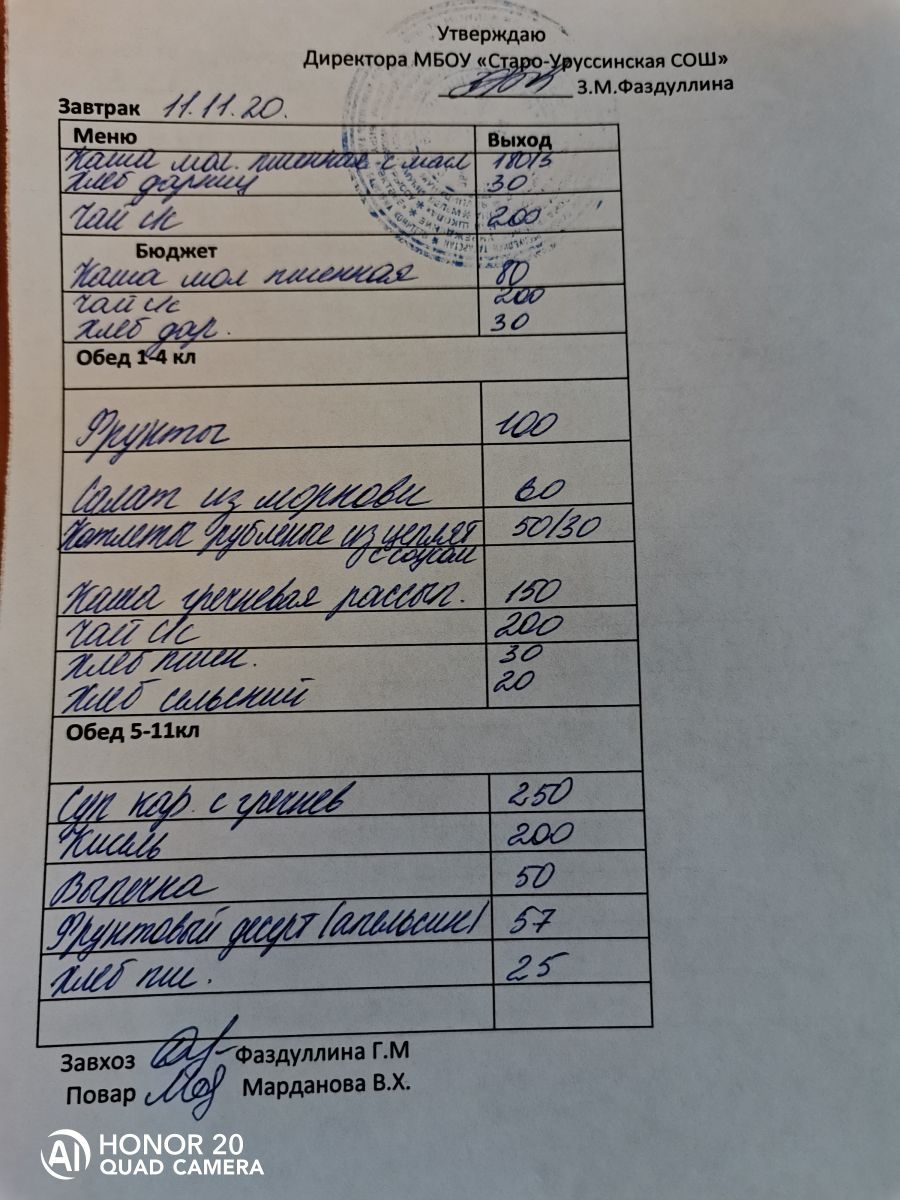 Утверждаю
Директора МБОУ «Старо-Уруссинская СОШ»
З.М.Фаздуллина
Завтрак 11.11.20.
Меню Выход
Каша мол. пшенная с масл 180/5
Хлеб дарниц 30
Чай с/с 200
Бюджет
Каша мол пшенная 80
Чай с/с 200
Хлеб дар. 30
Обед 1-4 кл
Фрукты 100
Салат из моркови 60
Котлеты рубленые из цеплят 50/30
с соусом
Каша гречневая рассып. 150
Чай с/с 200
Хлеб пшен. 30
Хлеб сельский 20
Обед 5-11кл
Суп кар. с гречнев 250
Кисель 200
Выпечка 50
Фруктовый десерт (апельсин) 57
Хлеб пш. 25
Завхоз Фаздуллина Г.М
Повар Марданова В.Х.
HONOR 20
AI QUAD CAMERA